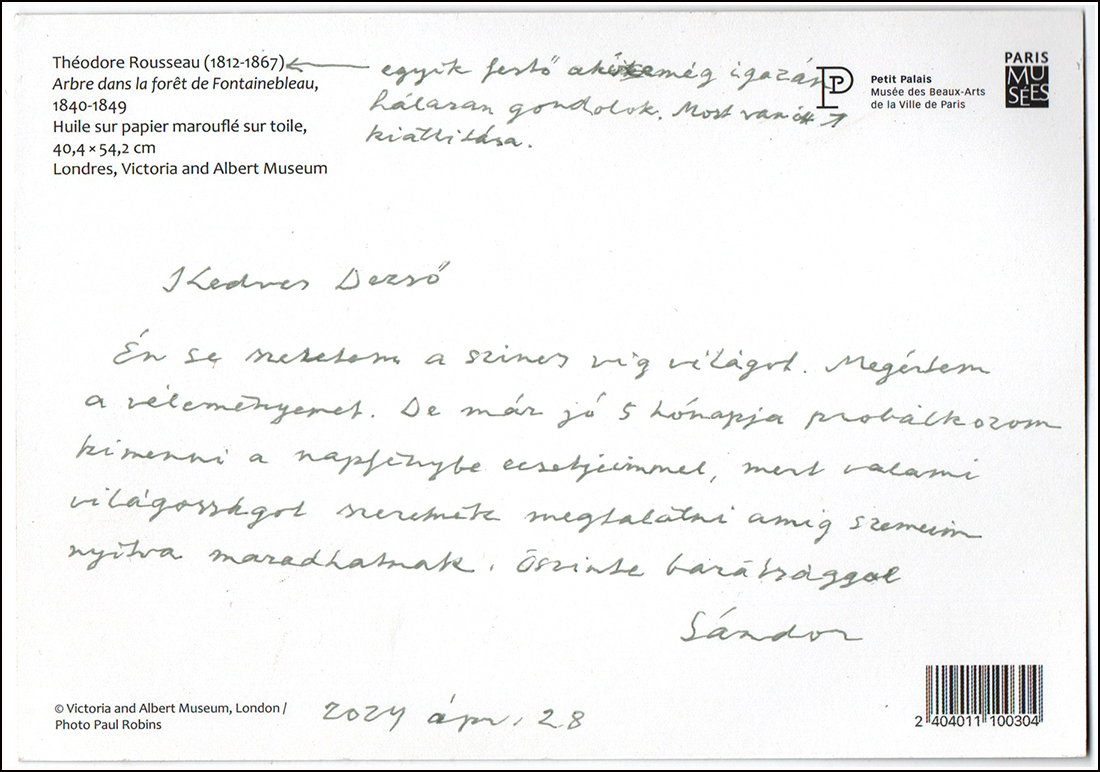 Théodore Rousseau (1812-1867)
Arbre dans la forêt de Fontainebleau,
1840-1849
Huile sur papier marouflé sur toile,
40,4 × 54,2 cm
Londres, Victoria and Albert Museum
egyik festő még igazán
hálásan gondolok. Most van itt
kiállítása.
Petit Palais
Musée des Beaux-Arts
de la Ville de Paris
PARIS
MU
SÉES
Kedves Dezső
Én se szeretem a szines víg világot. Megértem
a véleményemet. De már jó 5 hónapja probálkozom
kimenni a napfénybe ecsetjeimmel, mert valami
világosságot szeretnék megtalálni amig szemeim
nyitva maradhatnak. Őszinte barátsággal
Sándor
© Victoria and Albert Museum, London /
Photo Paul Robins
2024 ápr. 28
2 404011 100304